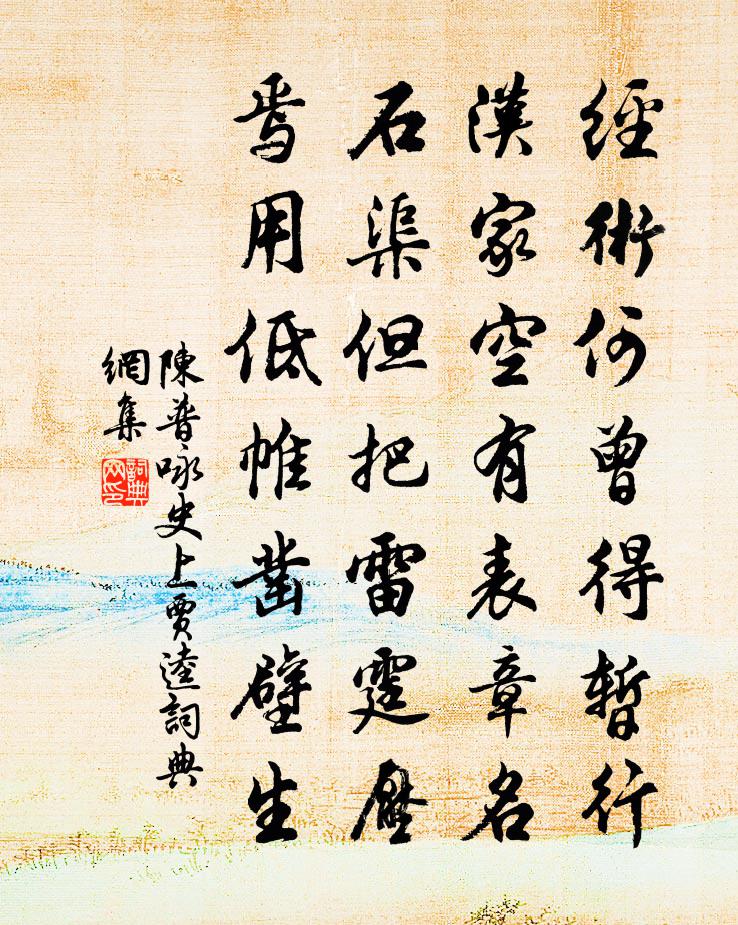 經術何曾得暫行
漢家空有表章名
石渠但把雷霆壓
焉用低帷凿壁生
陳普咏史上賈逵詞典
網集
詞典
网印